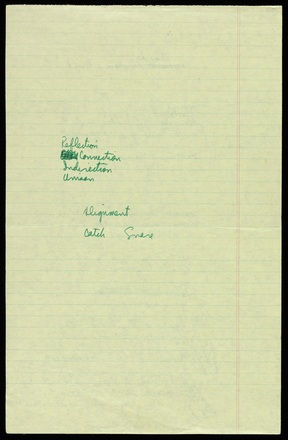 Reflection
Connection
Indirection
Unison
Alignment
Catch Snare